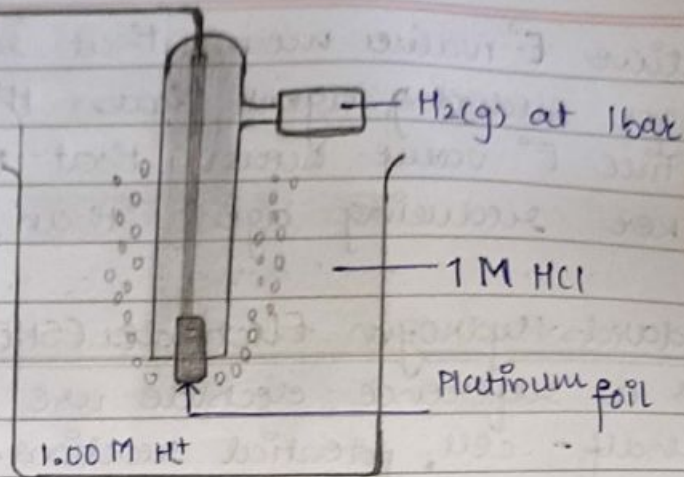 H2(g) at 1bar
1 M HCl
Platinum foil
1.00 M H+